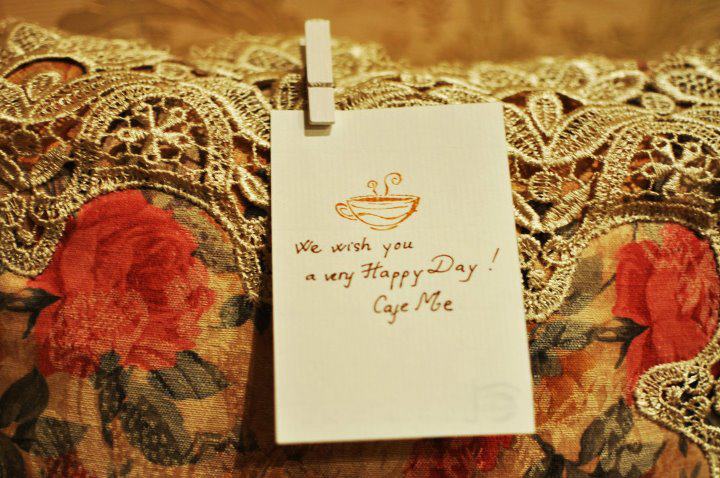 We wish you
a very Happy Day !
Cafe Me